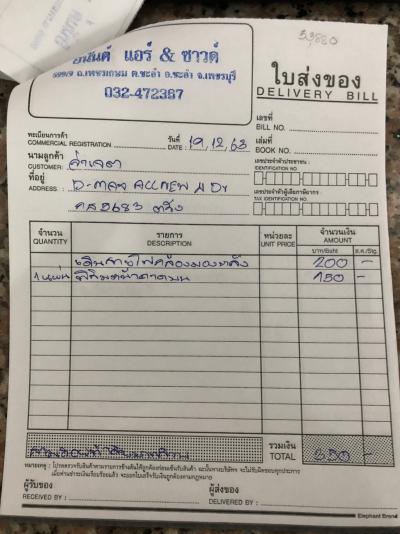 53880
อนันต์ แอร์ & ซาวด์
ถ.เพชรเกษม ต.ชะอำ อ.ชะอำ จ.เพชรบุรี
032-472387
ใบส่งของ
DELIVERY BILL
เลขที่
BILL NO.
ทะเบียนการค้า
COMMERCIAL REGISTRATION
วันที่
DATE : 19,12,63
เล่มที่
BOOK NO.
นามลูกค้า
CUSTOMER:
เลขประจำตัวประชาชน :
IDENTIFICATION NO.
ที่อยู่
ADDRESS : D-max ALLNEW 4 Dr
เลขประจำตัวผู้เสียภาษีอากร
TAX IDENTIFICATION NO.
2683 ตรัง
จำนวน
QUANTITY
รายการ
DESCRIPTION
หน่วยละ
UNIT PRICE
จำนวนเงิน
AMOUNT
บาท/Baht
ส.ต./Stg.
เดินสายไฟกล้องมองหลัง 200 -
1 แผ่น 150 -
รวมเงิน
TOTAL 350 -
ผู้รับของ
RECEIVED BY :
ผู้ส่งของ
DELIVERED BY :
Elephant Brand